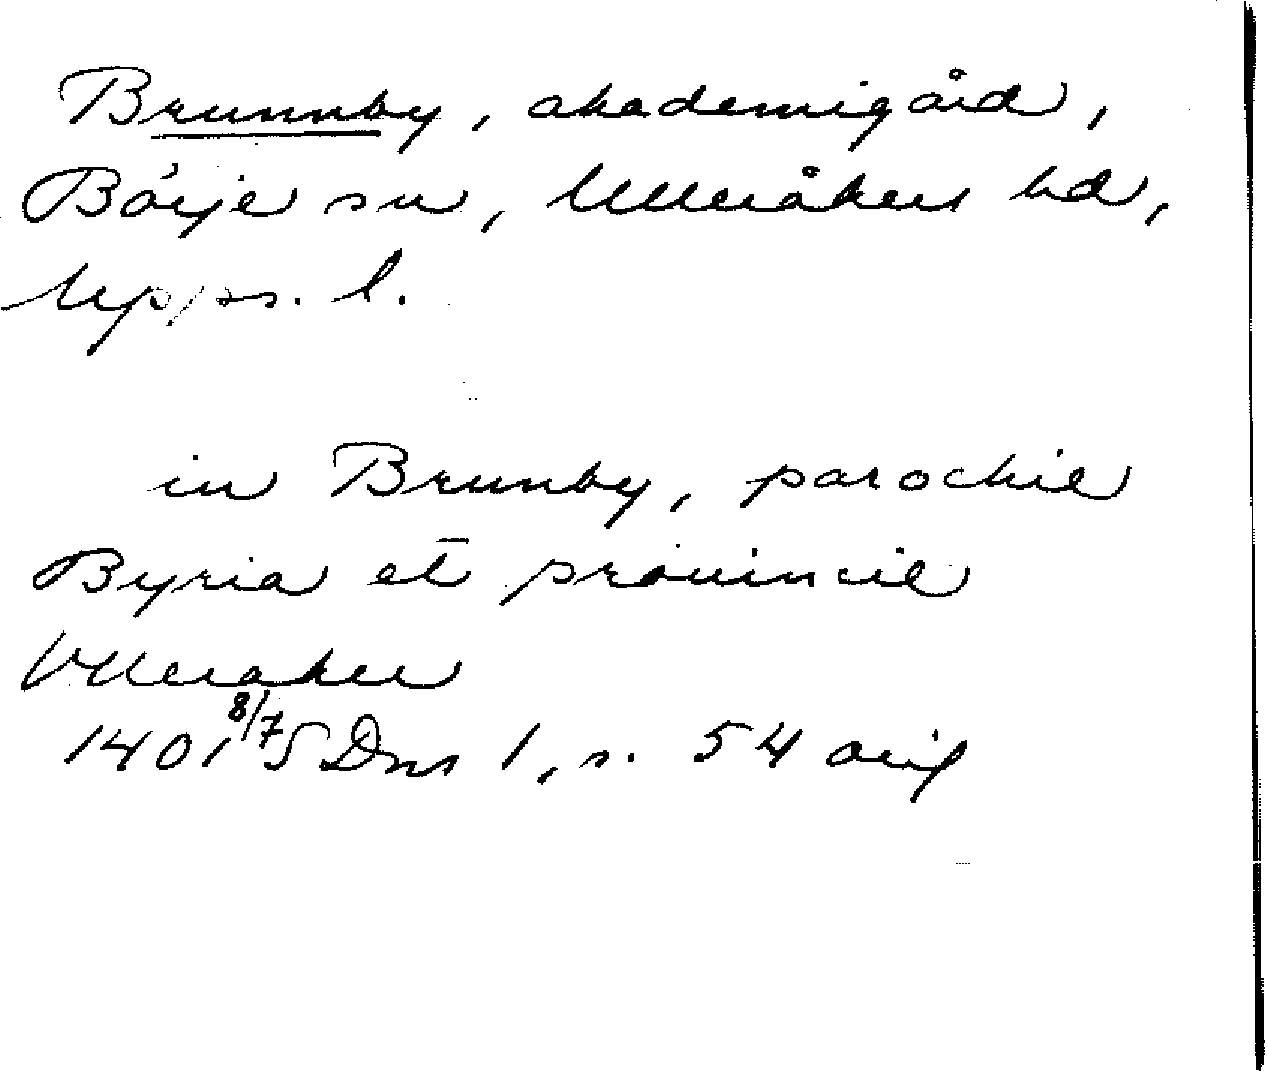 Brunnby, akademigård,
Börje sn, Ulleråkers hd,
Upps. l.
in Brunby, parochie
Byria et prouincie
Vlleraker
1401 8/7 SDns 1, s. 54 orig